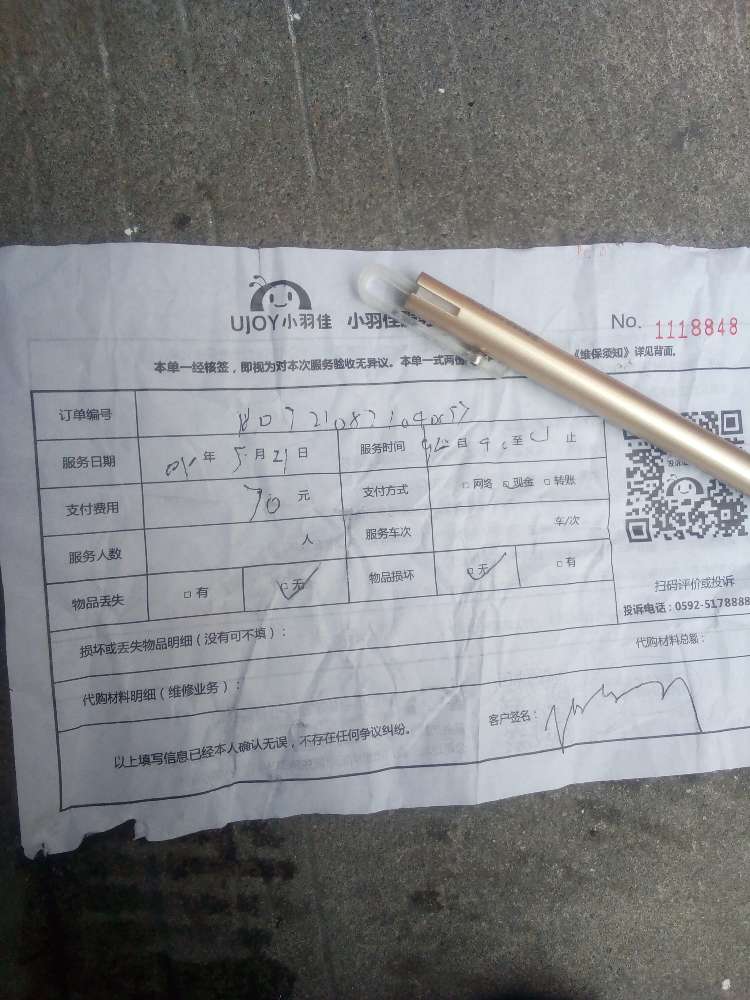 UJOY小羽佳 小羽佳
No. 1118848
本单一经核签，即视为对本次服务验收无异议。本单一式两 《维保须知》详见背面。
订单编号
服务日期 年 5月21日 服务时间 自 至 止
支付费用 70元 支付方式 □网络 □现金 □转账
服务人数 人 服务车次 车/次
物品丢失 □有 □无 物品损坏 □无 □有
扫码评价或投诉
投诉电话：0592-5178888
损坏或丢失物品明细（没有可不填）：
代购材料明细（维修业务）： 代购材料总额：
以上填写信息已经本人确认无误，不存在任何争议纠纷。 客户签名：